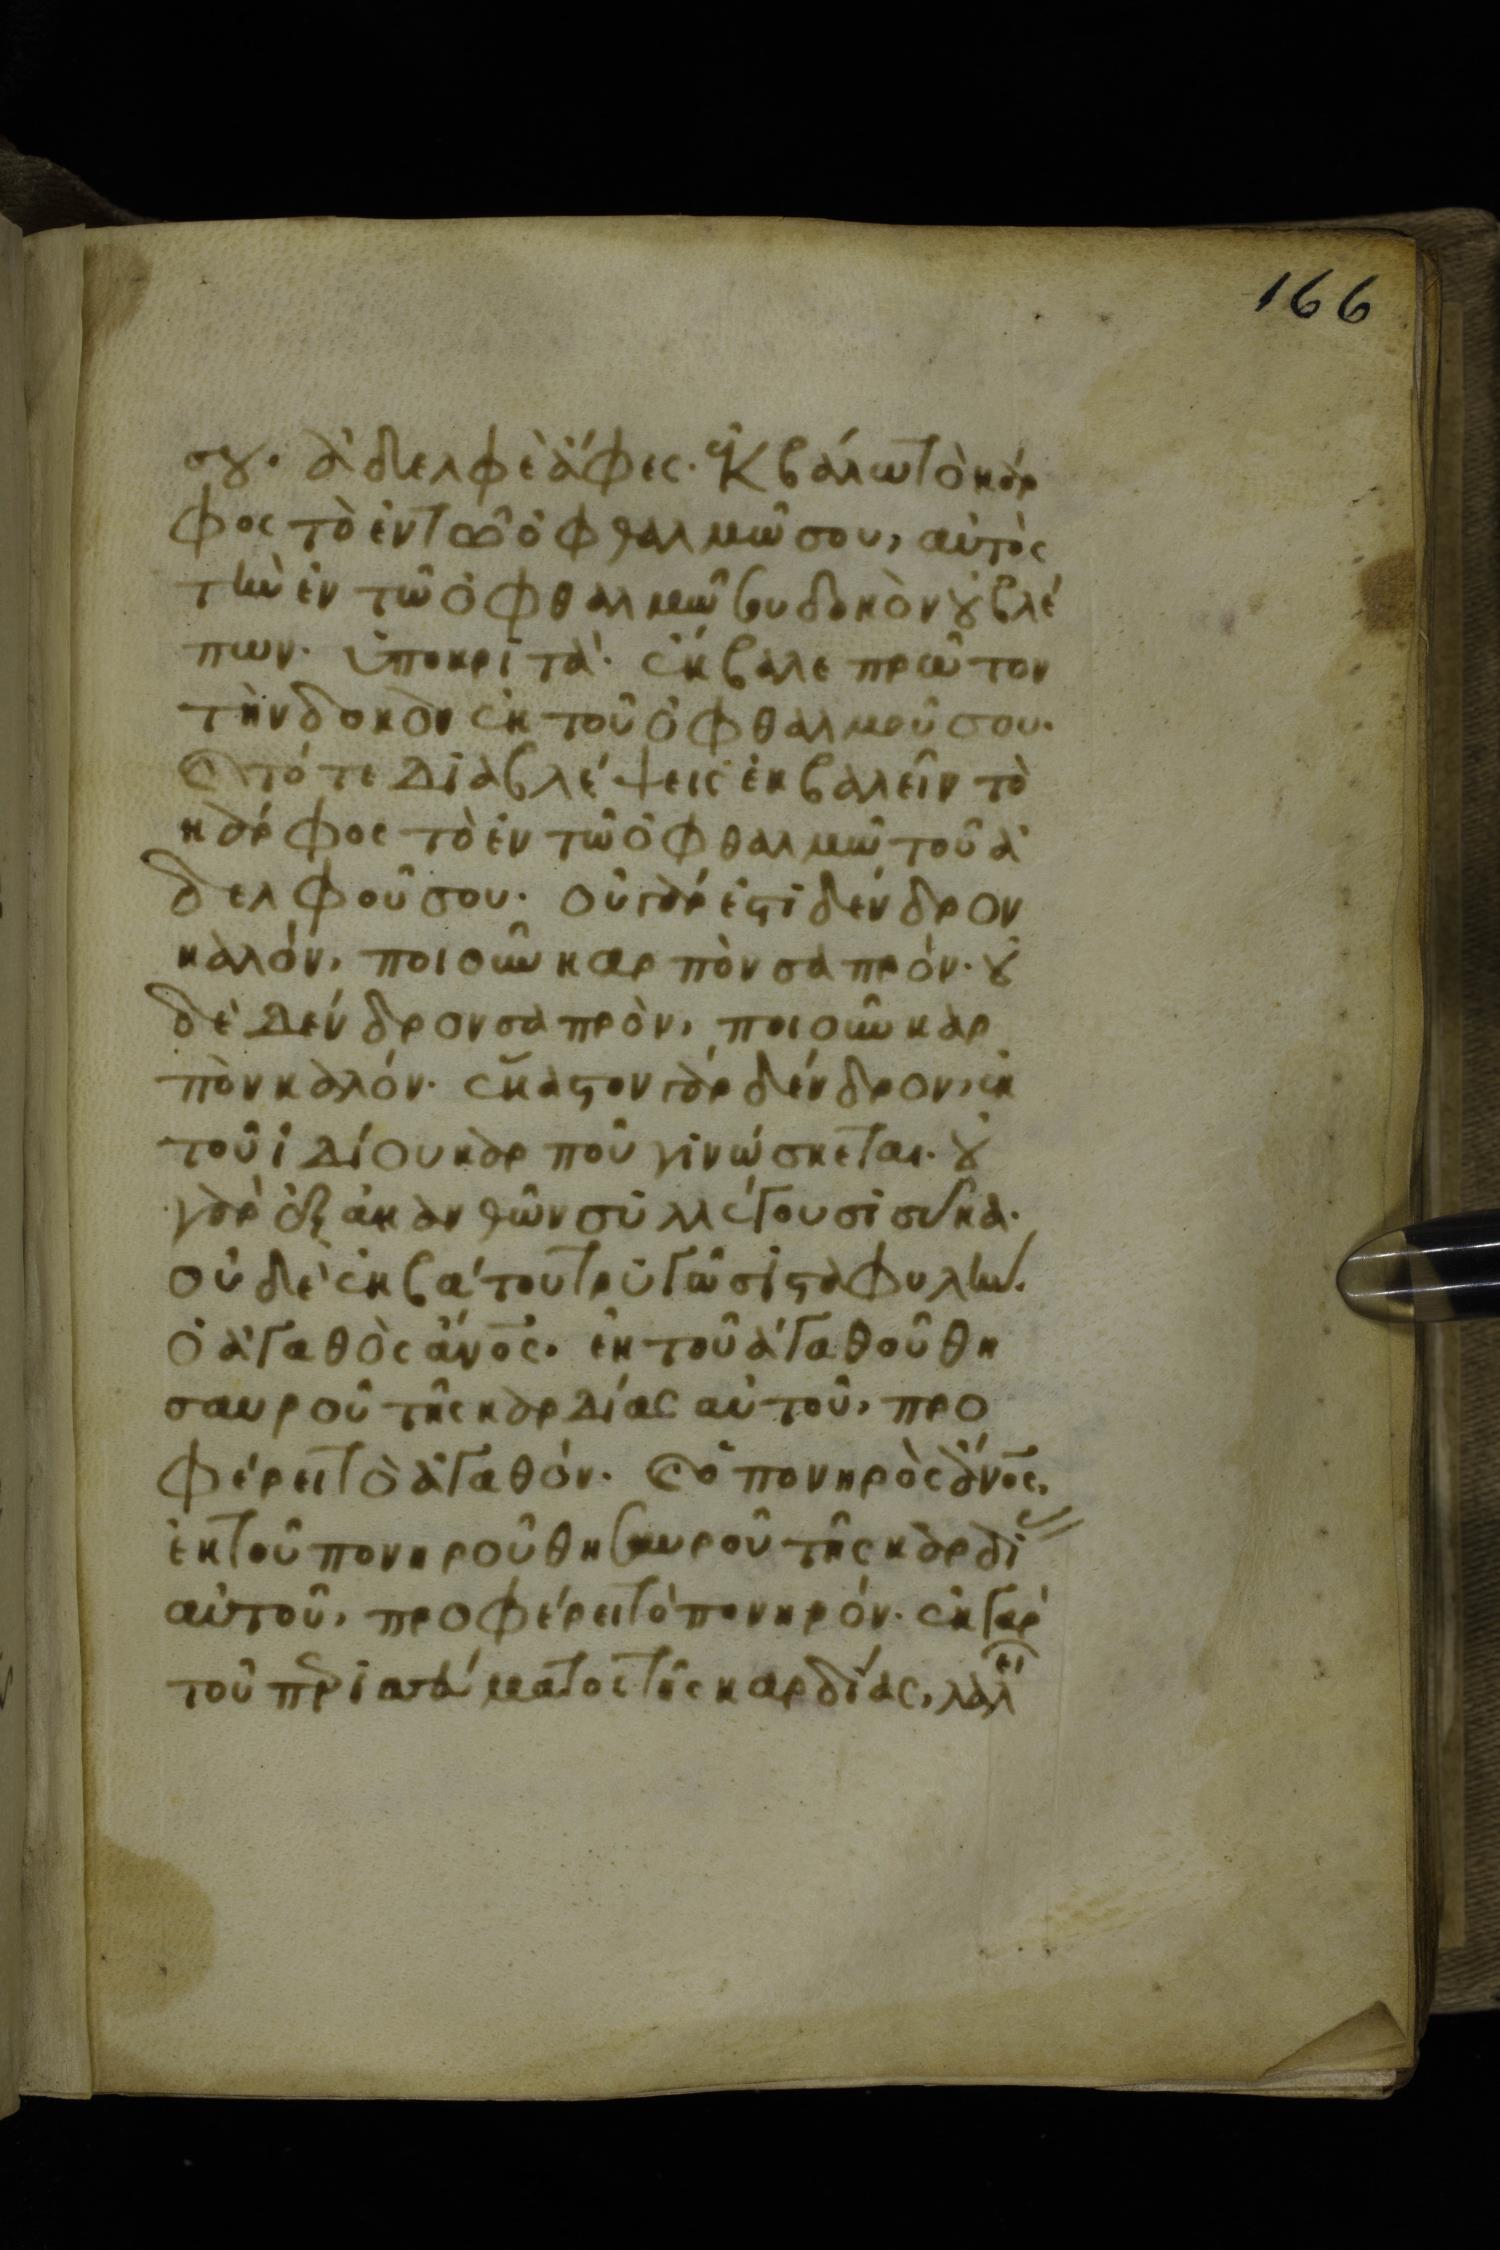 166
σου· ἀδελφὲ ἄφες· ἐκβάλω τὸ κάρ
φος τὸ ἐν τῶ ὀφθαλμῶ σου, αὐτὸς
τὴν ἐν τῶ ὀφθαλμῶ σου δοκὸν οὐ βλέ
πων· ὑποκριτὰ· ἔκβαλε πρῶτον
τὴν δοκὸν ἐκ τοῦ ὀφθαλμοῦ σου·
καὶ τότε διαβλέψεις ἐκβαλεῖν τὸ
κάρφος τὸ ἐν τῶ ὀφθαλμῶ τοῦ ἀ
δελφοῦ σου· οὐ γάρ ἐστι δένδρον
καλόν, ποιοῦν καρπὸν σαπρόν· οὐ
δὲ δένδρον σαπρὸν, ποιοῦν καρ
πὸν καλόν· ἕκαστον γὰρ δένδρον, ἐκ
τοῦ ἰδίου καρποῦ γινώσκεται· οὐ
γὰρ ἐξ ἀκανθῶν συλλέγουσι σῦκα·
οὐδὲ ἐκ βάτου τρυγῶσι σταφυλήν·
ὁ ἀγαθὸς ἄνος, ἐκ τοῦ ἀγαθοῦ θη
σαυροῦ τῆς καρδίας αὐτοῦ, προ
φέρει τὸ ἀγαθόν· καὶ ὁ πονηρὸς ἄνος,
ἐκ τοῦ πονηροῦ θησαυροῦ τῆς καρδί
αὐτοῦ, προφέρει τὸ πονηρόν· ἐκ γὰρ
τοῦ περισσεύματος τῆς καρδίας, λαλεῖ